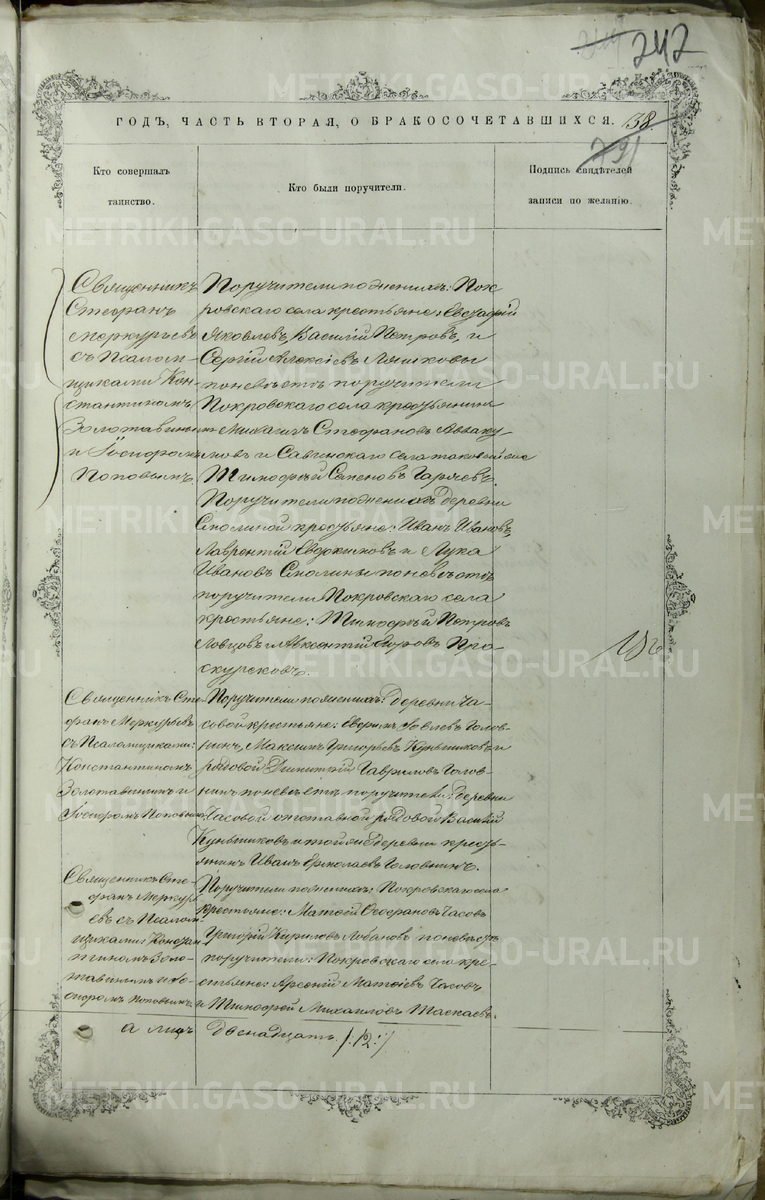 242
ГОДЪ, ЧАСТЬ ВТОРАЯ, О БРАКОСОЧЕТАВШИХСЯ. 138.
791
Кто совершалъ
таинство.
Кто были поручители.
Подпись свидѣтелей
записи по желанію.
Священникъ
Стефанъ
Меркурьевъ
съ Псалом-
щиками Кон-
стантиномъ
Золотавинымъ
и
Поповымъ
Поручители по женихѣ: Пок-
ровскаго села крестьяне:
Яковлевъ, Василій Петровъ, и
Сергій Алексѣевъ
по невѣстѣ поручители
Покровскаго села крестьянинъ
Михаилъ Стефановъ Авваку-
мовъ и Савинскаго села таковой же
Тимофей Семеновъ
Поручители по женихѣ деревни
Смолиной крестьяне: Иванъ Ивановъ,
Лаврентій Евдокимовъ и Лука
Ивановъ Смолины по невѣстѣ
поручители Покровскаго села
крестьяне: Тимофей Петровъ
Ловцовъ и Авксентій Про-
скуряковъ.
Священникъ Сте-
фанъ Меркурьевъ
съ Псаломщиками:
Константиномъ
Золотавинымъ и
Поповымъ
Поручители по женихѣ: деревни Ча-
совой крестьяне: Голов-
Максимъ Григорьевъ Кунщиковъ и
рядовой Димитрій Гавриловъ Голов-
нинъ по невѣстѣ поручители: деревни
Часовой отставной рядовой Василій
Кунщиковъ и той же деревни кресть-
янинъ Иванъ Ермолаевъ Головнинъ.
Священникъ Сте-
фанъ Меркурь-
евъ съ Псалом-
щиками Констан-
тиномъ Золо-
тавинымъ и
Поповымъ
Поручители по женихѣ: Покровскаго села
крестьяне: Матвѣй Часовъ
Григорій Кириловъ Лобановъ по невѣстѣ
поручители: Покровскаго села кре-
стьяне: Арсеній Матвѣевъ Часовъ
и Тимофей Михайловъ Таскаевъ.
а лицъ двенадцать /:12:/
METRIKI.GASO-URAL.RU